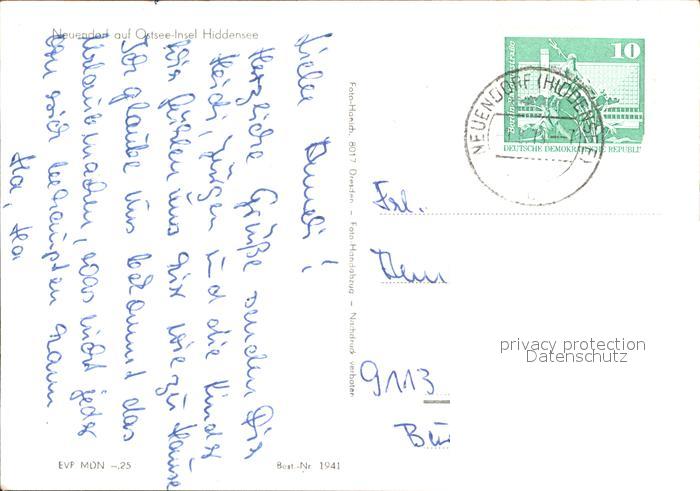 Neuendorf auf Ostsee-Insel Hiddensee
Liebe
Herzliche Grüße senden Dir
Heidi, Jürgen und die Kinder
Wir fühlen uns hier wie zu Hause
Ich glaube uns bekommt das
Urlaub machen, was nicht jeder
von sich behaupten kann
Ha, Ha
EVP MDN –,25
Best.-Nr. 1941
Foto-Handh. 8017 Dresden – Foto-Handabzug – Nachdruck verboten
10
Berlin
DEUTSCHE DEMOKRATISCHE REPUBLIK
NEUENDORF (HIDDENSEE)
Frl.
9113
privacy protection
Datenschutz